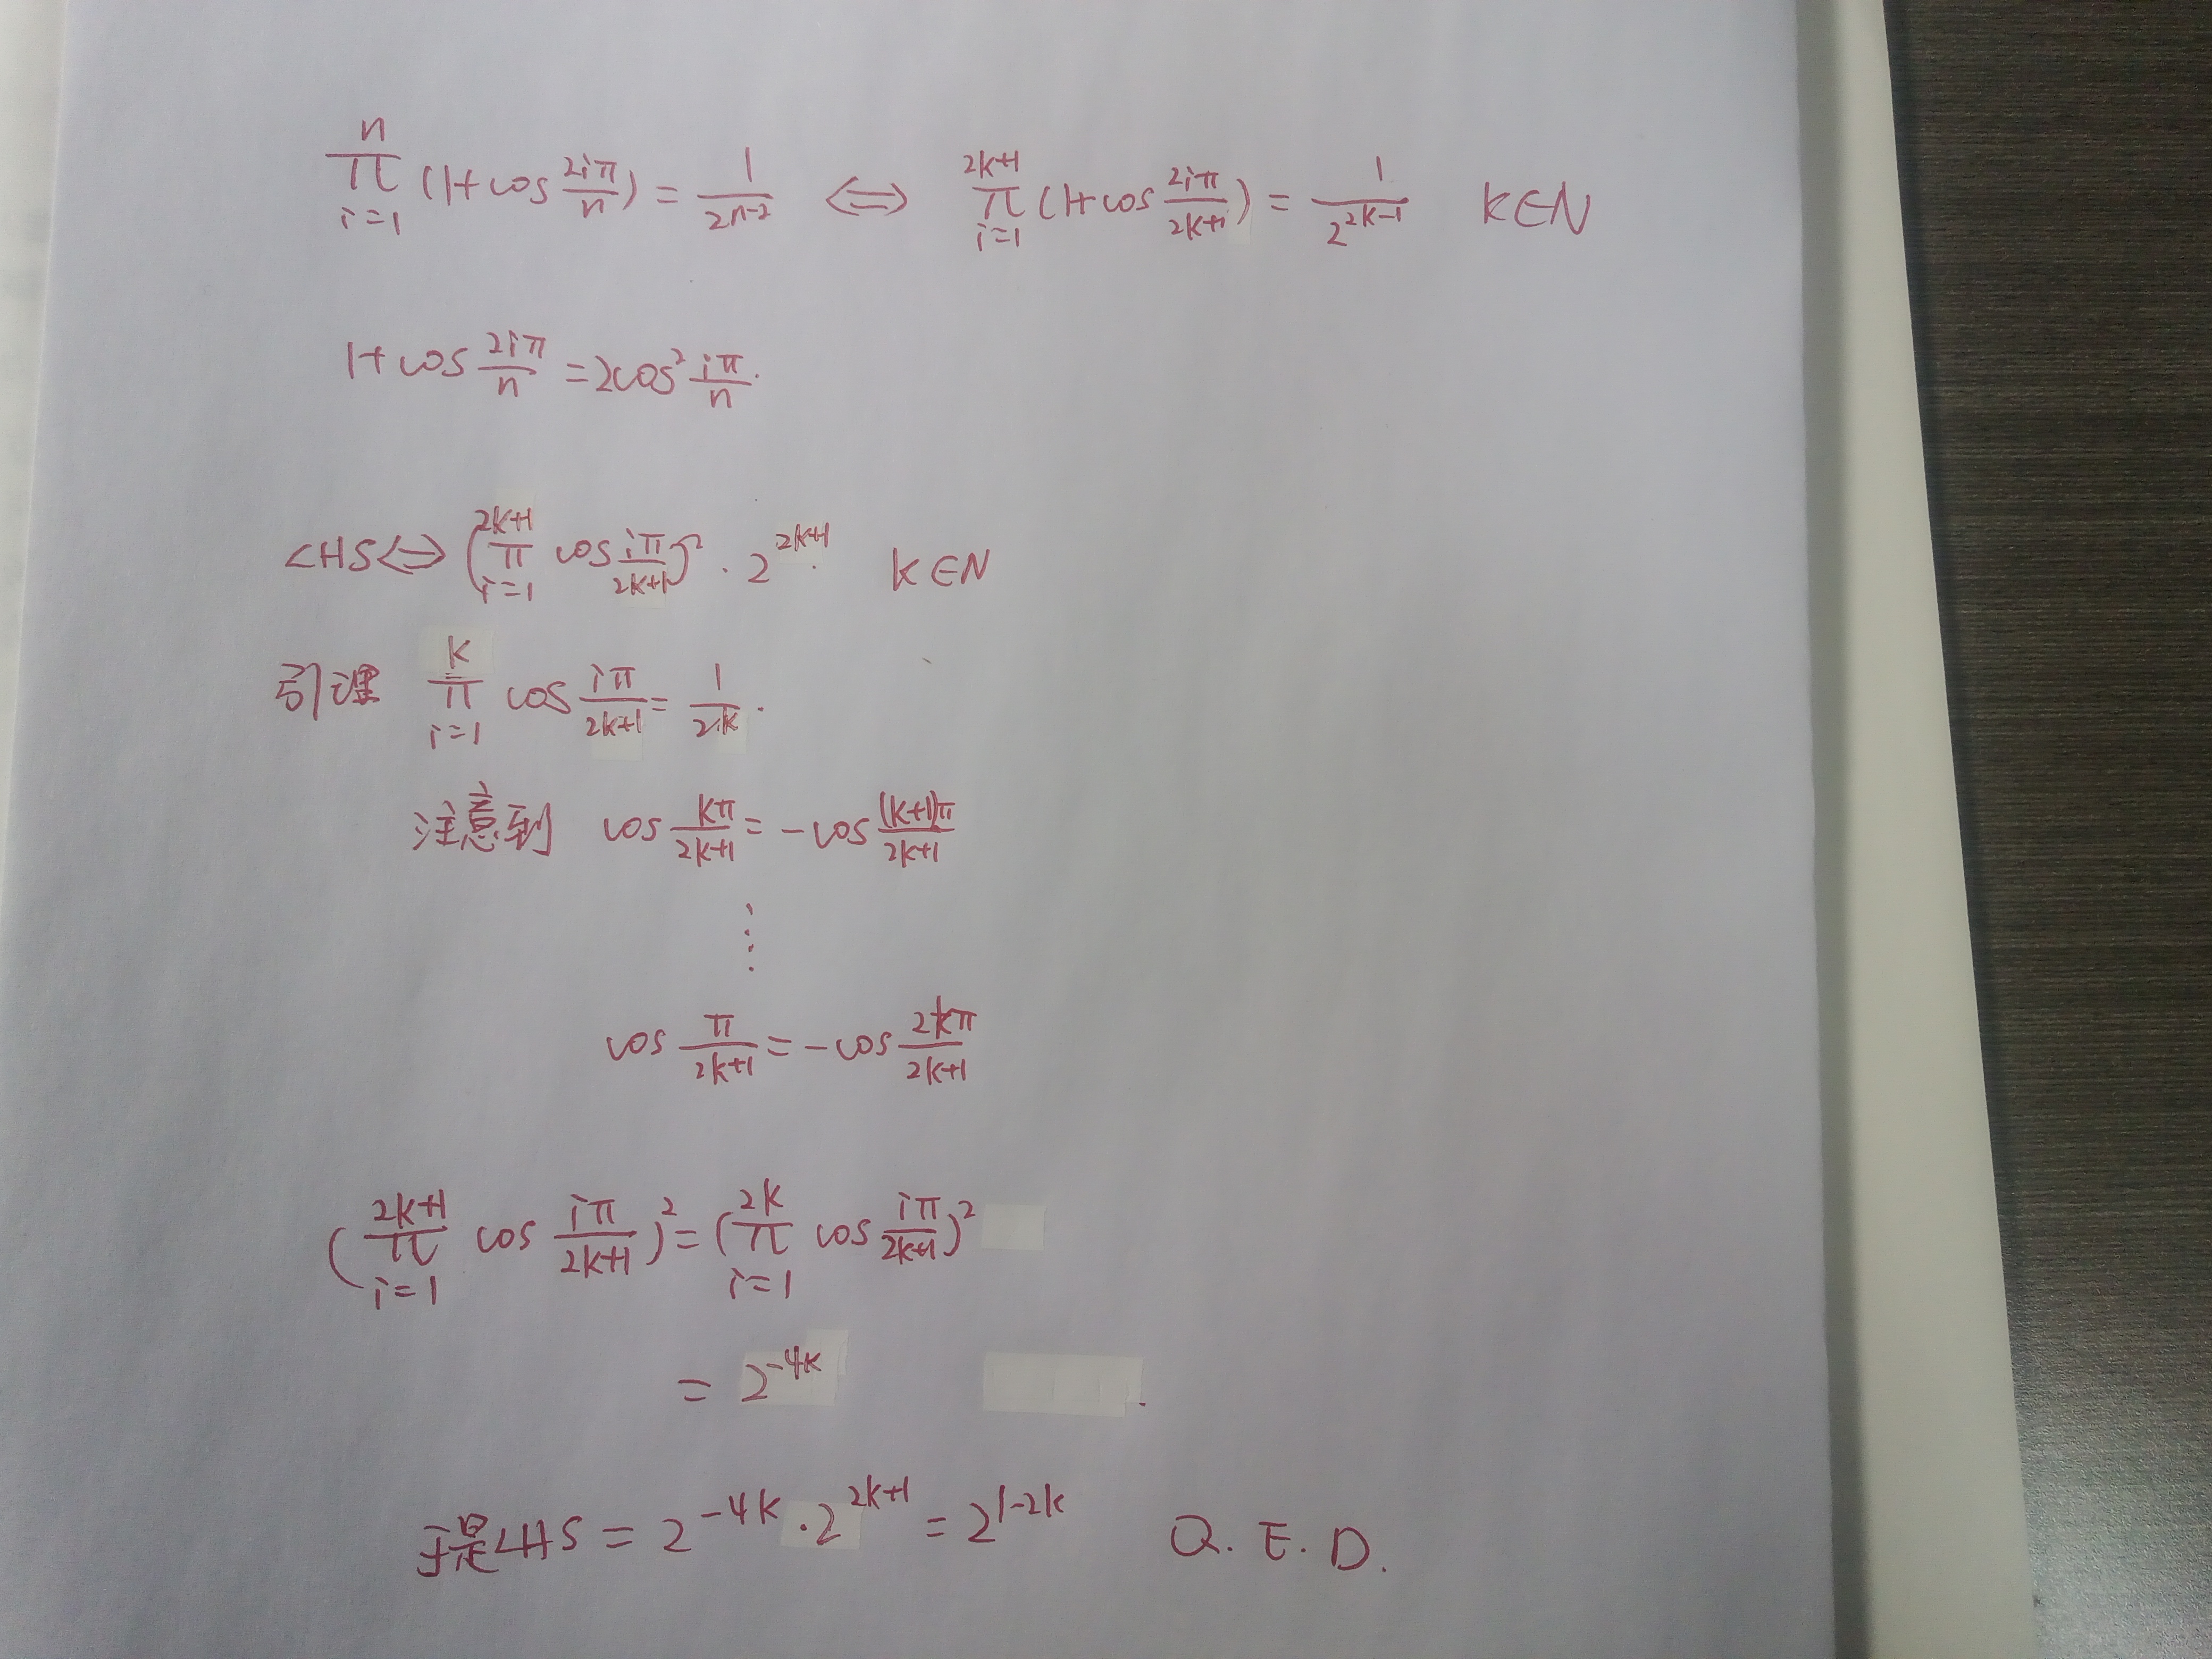 $\prod_{i=1}^{n} (1+\cos\frac{2i\pi}{n}) = \frac{1}{2^{n-2}} \Leftrightarrow \prod_{i=1}^{2k+1} (1+\cos\frac{2i\pi}{2k+1}) = \frac{1}{2^{2k-1}} \quad k \in N$
$1+\cos\frac{2i\pi}{n} = 2\cos^2\frac{i\pi}{n}.$
$LHS \Leftrightarrow (\prod_{i=1}^{2k+1} \cos\frac{i\pi}{2k+1})^2 \cdot 2^{2k+1} \quad k \in N$
引理 $\prod_{i=1}^{k} \cos\frac{i\pi}{2k+1} = \frac{1}{2^k}.$
注意到 $\cos\frac{k\pi}{2k+1} = -\cos\frac{(k+1)\pi}{2k+1}$
$\vdots$
$\cos\frac{\pi}{2k+1} = -\cos\frac{2k\pi}{2k+1}$
$(\prod_{i=1}^{2k+1} \cos\frac{i\pi}{2k+1})^2 = (\prod_{i=1}^{2k} \cos\frac{i\pi}{2k+1})^2$
$= 2^{-4k}$ .
于是 $LHS = 2^{-4k} \cdot 2^{2k+1} = 2^{1-2k}$ Q. E. D.